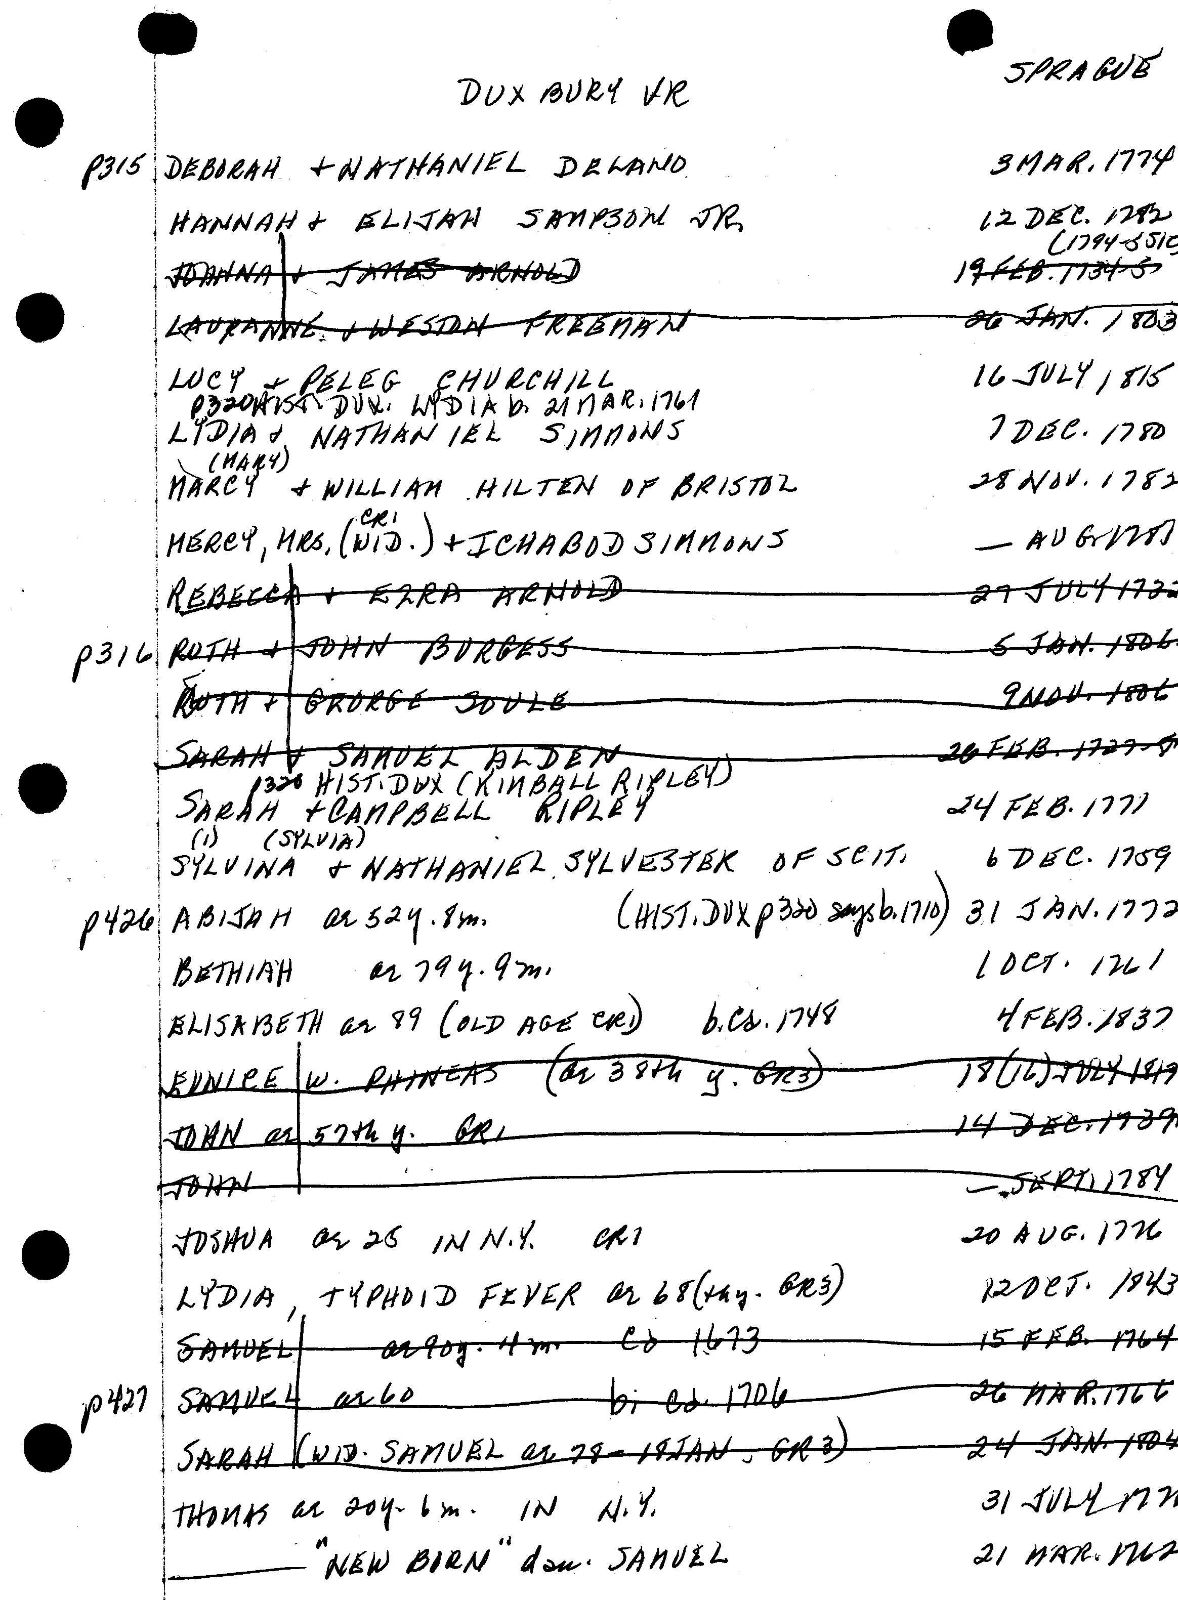 SPRAGUE
DUXBURY VR
p315 DEBORAH + NATHANIEL DELANO 3 MAR. 1774
HANNAH + ELIJAH SAMPSON JR. 12 DEC. 1782
(1794-5 SIC
JOANNA + JAMES ARNOLD 19 FEB. 1734-5
LAURANNE + WESTON FREEMAN 26 JAN. 1803
LUCY + PELEG CHURCHILL 16 JULY 1815
p320 HIST. DUX. LYDIA b. 21 MAR. 1761
LYDIA + NATHANIEL SIMMONS 7 DEC. 1780
(MARY)
MARCY + WILLIAM HILTEN OF BRISTOL 28 NOV. 1782
CR1
MERCY, MRS. (WID.) + ICHABOD SIMMONS — AUG. 1787
REBECCA + EZRA ARNOLD 27 JULY 1732
p316 RUTH + JOHN BURGESS 5 JAN. 1806
RUTH + GEORGE SOULE 9 NOV. 1806
SARAH + SAMUEL ALDEN 26 FEB. 1727-8
p320 HIST. DUX (KIMBALL RIPLEY)
SARAH + CAMPBELL RIPLEY 24 FEB. 1771
(1) (SYLVIA)
SYLVINA + NATHANIEL SYLVESTER OF SCIT. 6 DEC. 1759
p426 ABIJAH ae 52y. 8m. (HIST. DUX p320 says b. 1710) 31 JAN. 1772
BETHIAH ae 79y. 9m. 1 OCT. 1761
ELISABETH ae 89 (OLD AGE CR1) b. Ca. 1748 4 FEB. 1837
EUNICE w. PHINEAS (ae 38th y. GR3) 18 (16) JULY 1819
JOHN ae 57th y. GR1 14 DEC. 1739
JOHN — SEPT. 1784
JOSHUA ae 25 IN N.Y. CR1 20 AUG. 1776
LYDIA, TYPHOID FEVER ae 68 (th y. GR3) 12 OCT. 1843
SAMUEL ae 90y. 4m. Ca 1673 15 FEB. 1764
p427 SAMUEL ae 60 b. Ca. 1706 26 MAR. 1766
SARAH (WID. SAMUEL ae 78 - 18 JAN. GR3) 24 JAN. 1804
THOMAS ae 20y. 6m. IN N.Y. 31 JULY
—— "NEW BORN" dau. SAMUEL 21 MAR. 1762